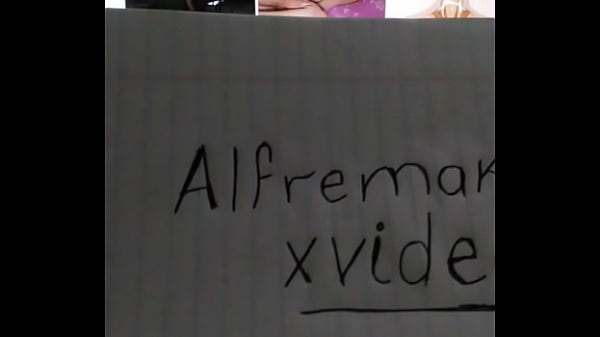 Alfremar
xvide